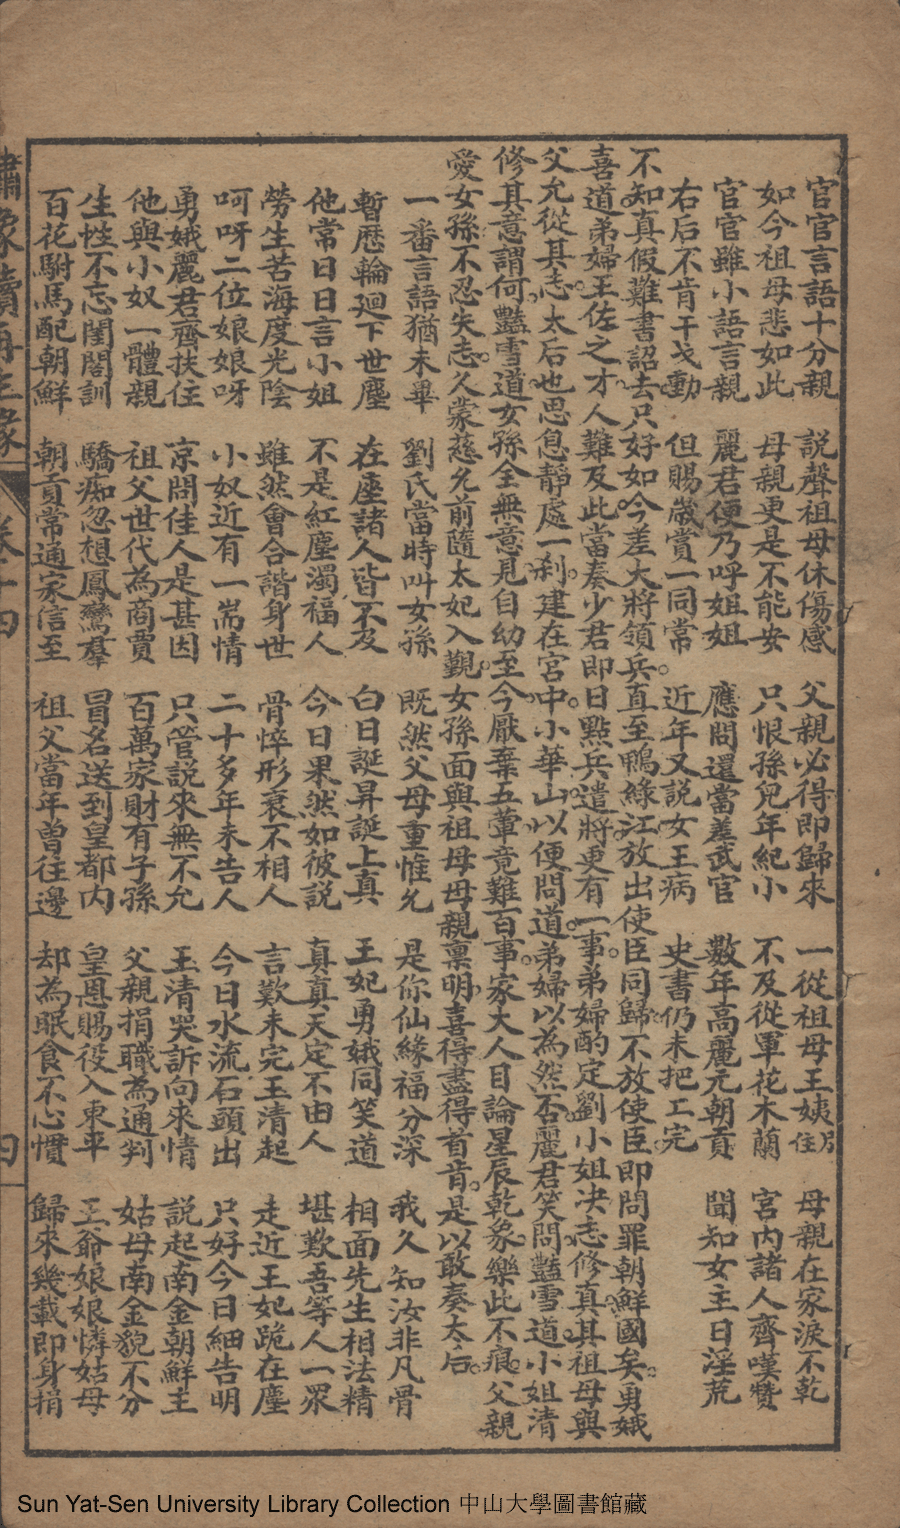 官官言語十分親 說聲祖母休傷感 父親必得即歸來 一從祖母王姨乃住 母親在家淚不乾
如今祖母悲如此 母親更是不能安 只恨孫兒年紀小 不及從軍花木蘭 宮內諸人齊嘆贊
官官雖小語言親 麗君便乃呼姐姐 應問還當差武官 數年高麗元朝貢 聞知女主日淫荒
右后不肯干戈動 但賜歲賞一同常 近年又說女王病 史書仍未把工完
不知真假難書詔去只好如今差大將領兵直至鴨綠江放出使臣同歸不放使臣即問罪朝鮮國矣勇娥
喜道弟婦王佐之才人難及此當奏少君即日點兵遣將更有一事弟婦酌定劉小姐決志修真其祖母與
父允從其志太后也思息靜處一剎建在宮中小華山以便問道弟婦以為然否麗君笑問豔雪道小姐清
修其意謂何豔雪道女孫全無意見自幼至今厭棄五葷竟難百事家大人目論星辰乾象樂此不痕父親
愛女孫不忍失志久蒙慈允前隨太妃入觀女孫面與祖母母親稟明喜得盡得首肯是以敢奏太后
一番言語猶未畢 劉氏當時叫女孫 既然父母重惟允 是你仙緣福分深 我久知汝非凡骨
暫歷輪迴下世塵 在座諸人皆不及 白日誕昇誕上真 王妃勇娥同笑道 相面先生相法精
他常日日言小姐 不是紅塵濁福人 今日果然如彼說 真真天定不由人 堪歎吾等人一眾
勞生苦海度光陰 雖然會合諧身世 骨悴形衰不相人 言歎未完玉清起 走近王妃跪在塵
呵呀二位娘娘呀 小奴近有一耑情 二十多年未告人 今日水流石頭出 只好今日細告明
勇娥麗君齊扶住 京問佳人是甚因 只管說來無不允 王清哭訴向來情 說起南金朝鮮主
他與小奴一體親 祖父世代為商賈 百萬家財有子孫 父親捐職為通判 姑母南金貌不分
生性不忘閨閣訓 驕痴忽想鳳鸞羣 冒名送到皇都內 皇恩賜役入東平 王爺娘娘憐姑母
百花駙馬配朝鮮 朝貢常通家信至 祖父當年曾往邊 却為眠食不心慣 歸來幾載即身捐
繡像續再生緣 卷十四 四
Sun Yat-Sen University Library Collection 中山大學圖書館藏